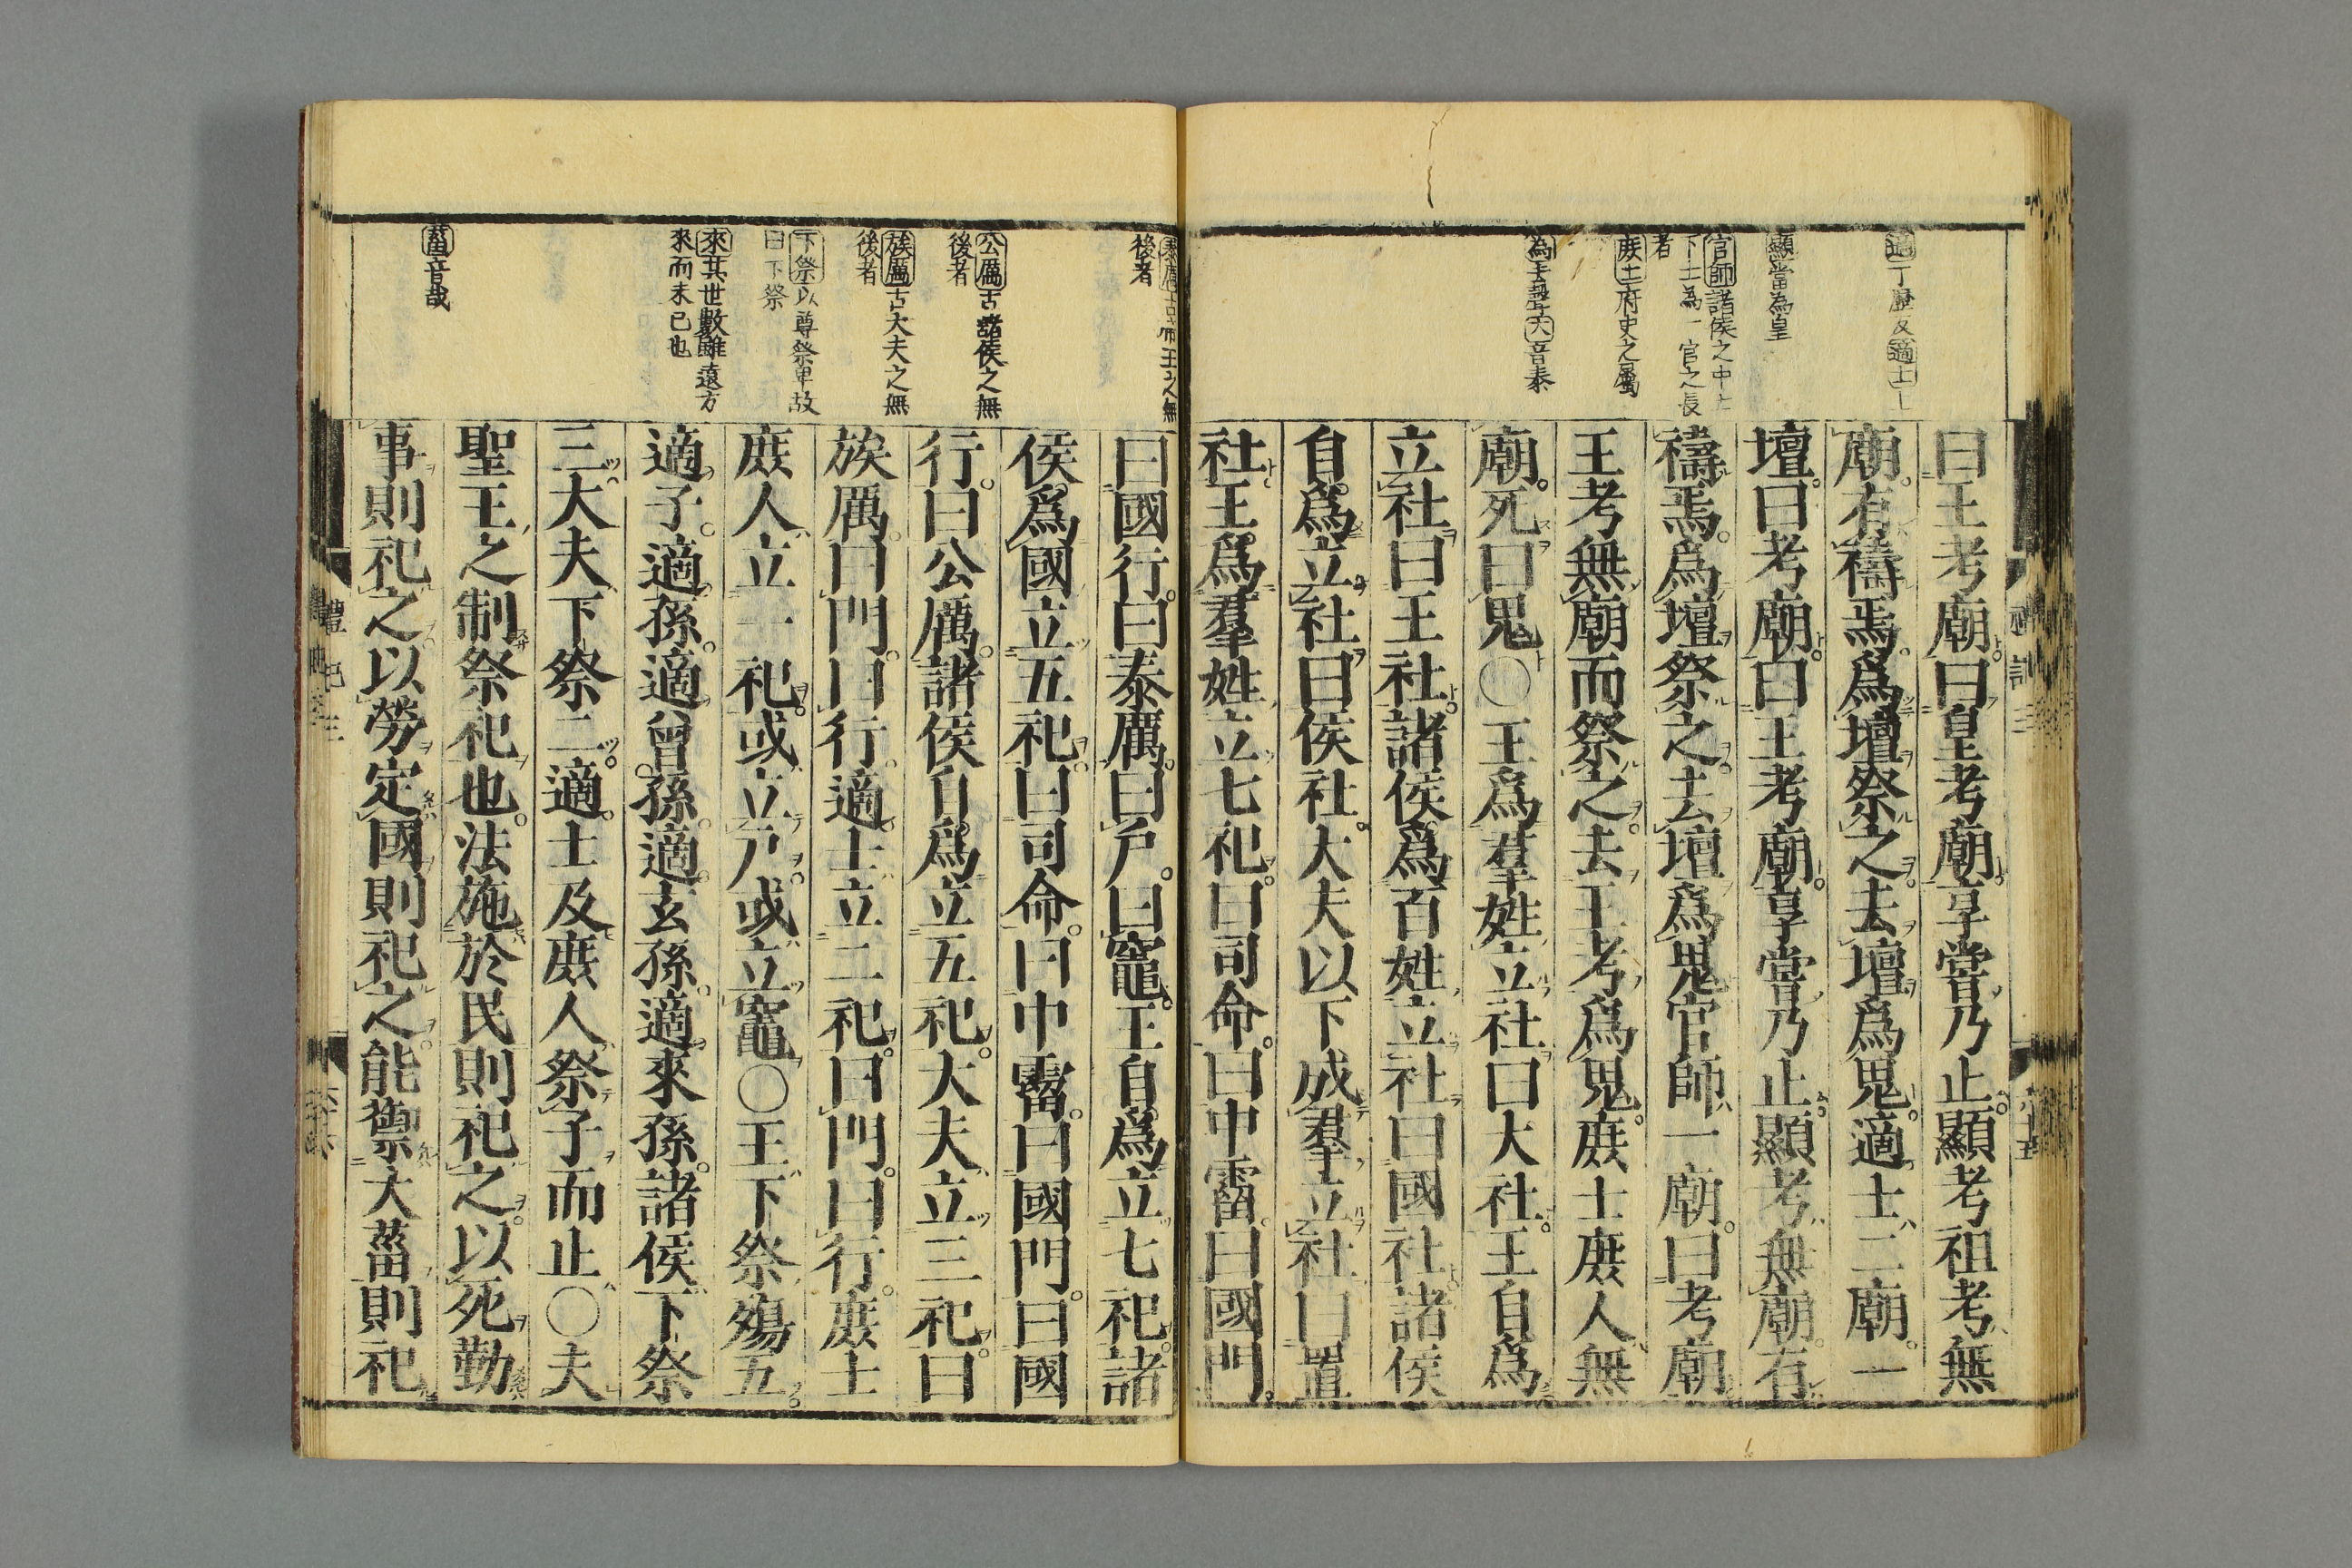 曰王考廟。曰皇考廟。享嘗乃止。顯考祖考無
廟。有禱焉。爲壇祭之。去壇爲鬼。適士二廟。一
壇。曰考廟。曰王考廟。享嘗乃止。顯考無廟。有
禱焉。爲壇祭之。去壇爲鬼。官師一廟。曰考廟
王考無廟而祭之。去王考爲鬼。庻士庻人無
廟。死曰鬼○王爲羣姓立社曰大社。王自爲
立社曰王社。諸侯爲百姓立社曰國社。諸侯
自爲立社曰侯社。大夫以下成羣立社曰置
社。王爲羣姓立七祀。曰司命。曰中霤。曰國門。
適丁歷反適士上
顯當為皇
官師諸侯之中士
下士為一官之長
者
庻士府史之屬
為去聲大音泰
曰國行。曰泰厲。曰戶。曰竈。王自爲立七祀。諸
侯爲國立五祀。曰司命。曰中霤。曰國門。曰國
行。曰公厲。諸侯自爲立五祀。大夫立三祀。曰
族厲。曰門。曰行。適士立二祀。曰門。曰行。庻士
庻人立一祀。或立戶。或立竈○王下祭殤五。
適子。適孫。適曾孫。適玄孫。適來孫。諸侯下祭
三。大夫下祭二。適士及庻人祭子而止○夫
聖王之制祭祀也。法施於民則祀之。以死勤
事則祀之。以勞定國則祀之。能禦大菑則祀
泰厲古帝王之無
後者
公厲古諸侯之無
後者
族厲古大夫之無
後者
下祭以尊祭卑故
曰下祭
來其世數雖遠方
來而未已也
菑音哉
禮記三